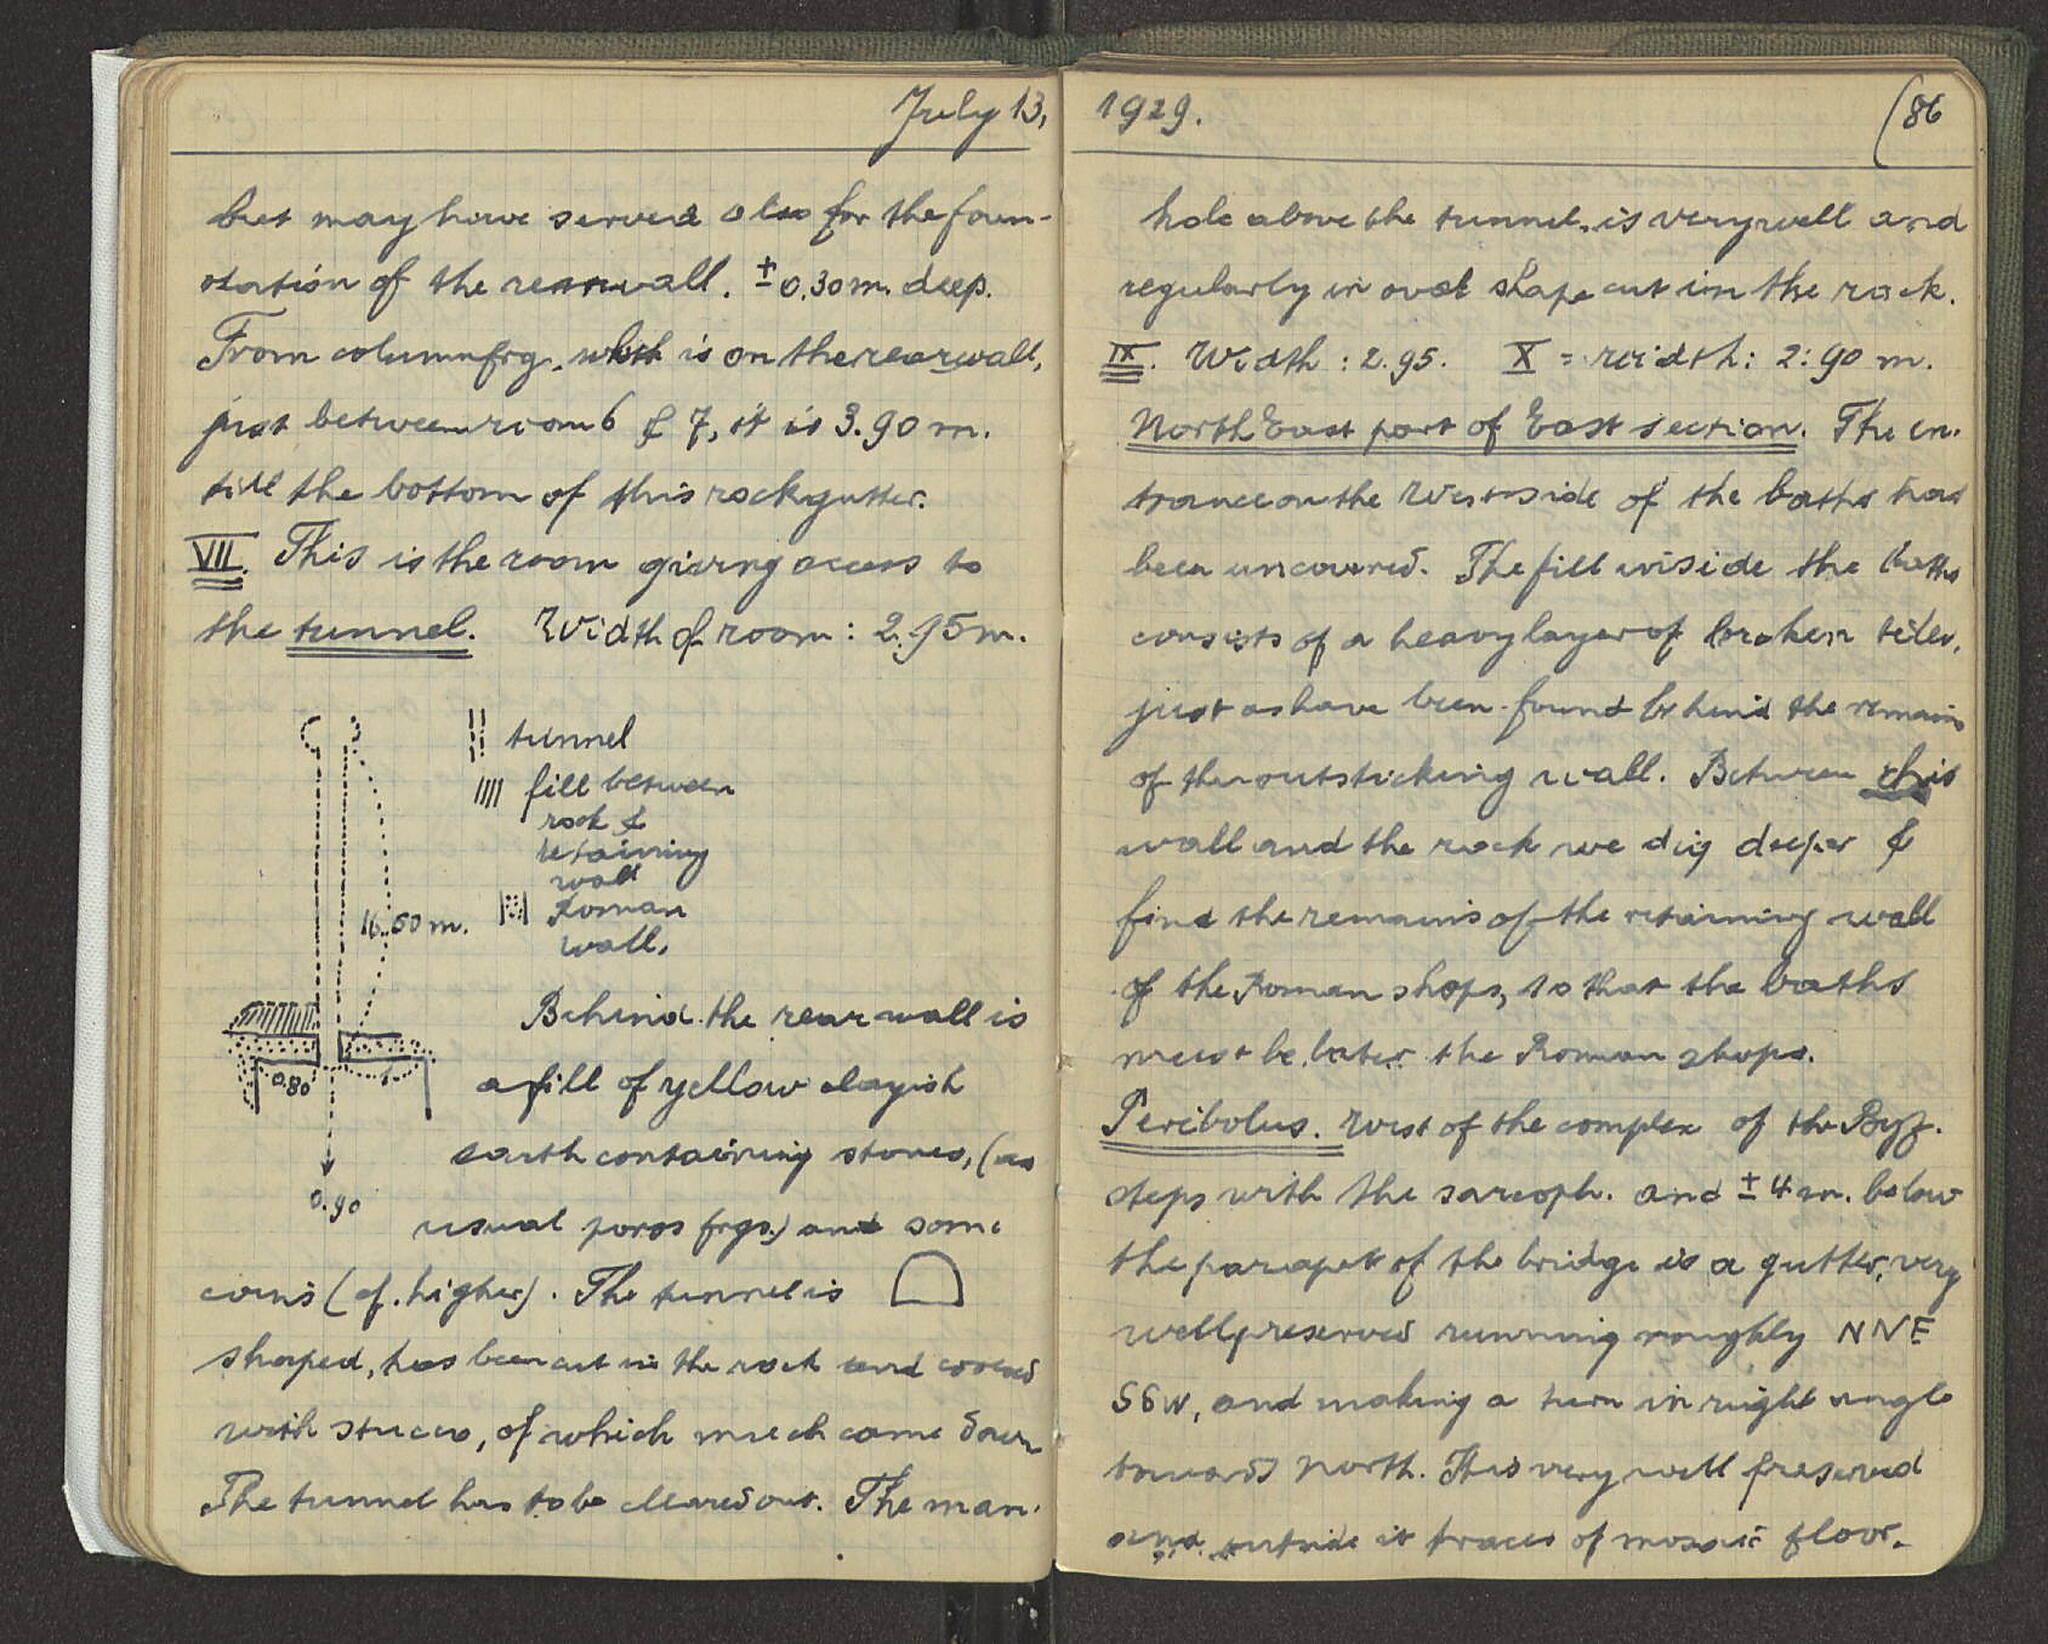 July 13,
but may have served also for the foun-
dation of the rearwall. ± 0.30 m. deep.
From columnfrg. which is on the rearwall,
just between room 6 & 7, it is 3.90 m.
till the bottom of this rockgutter.
VII. This is the room giving access to
the tunnel. Width of room: 2.95 m.
tunnel
fill between
rock &
retaining
wall
Roman
wall.
16.50 m.
0.80
0.90
Behind the rear wall is
a fill of yellow clayish
earth containing stones, (as
usual poros frgs.) and some
coins (cf. higher). The tunnel is
shaped, has been cut in the rock and covered
with stucco, of which much came down
The tunnel has to be cleared out. The man-
1929.
(86
hole above the tunnel, is very well and
regularly in oval shape cut in the rock.
IX. Width: 2.95. X = width: 2.90 m.
North East part of East section. The en-
trance on the West side of the baths has
been uncovered. The fill inside the baths
consists of a heavy layer of broken tiles,
just as have been found behind the remains
of the outsticking wall. Between this
wall and the rock we dig deeper &
find the remains of the retaining wall
of the Roman shops, so that the baths
must be later the Roman shops.
Peribolus. West of the complex of the Byz.
steps with the sarcoph. and ± 4 m. below
the parapet of the bridge is a gutter, very
well preserved running roughly NNE
SSW, and making a turn in right angle
towards North. It is very well preserved
and outside it traces of mosaic floor.